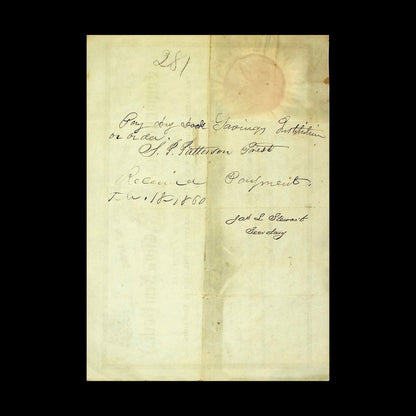 281
Pay Dry Dock Savings Institution
or order.
S. P. Patterson Prest
Received Payment.
18 1860
Stewart
Secretary